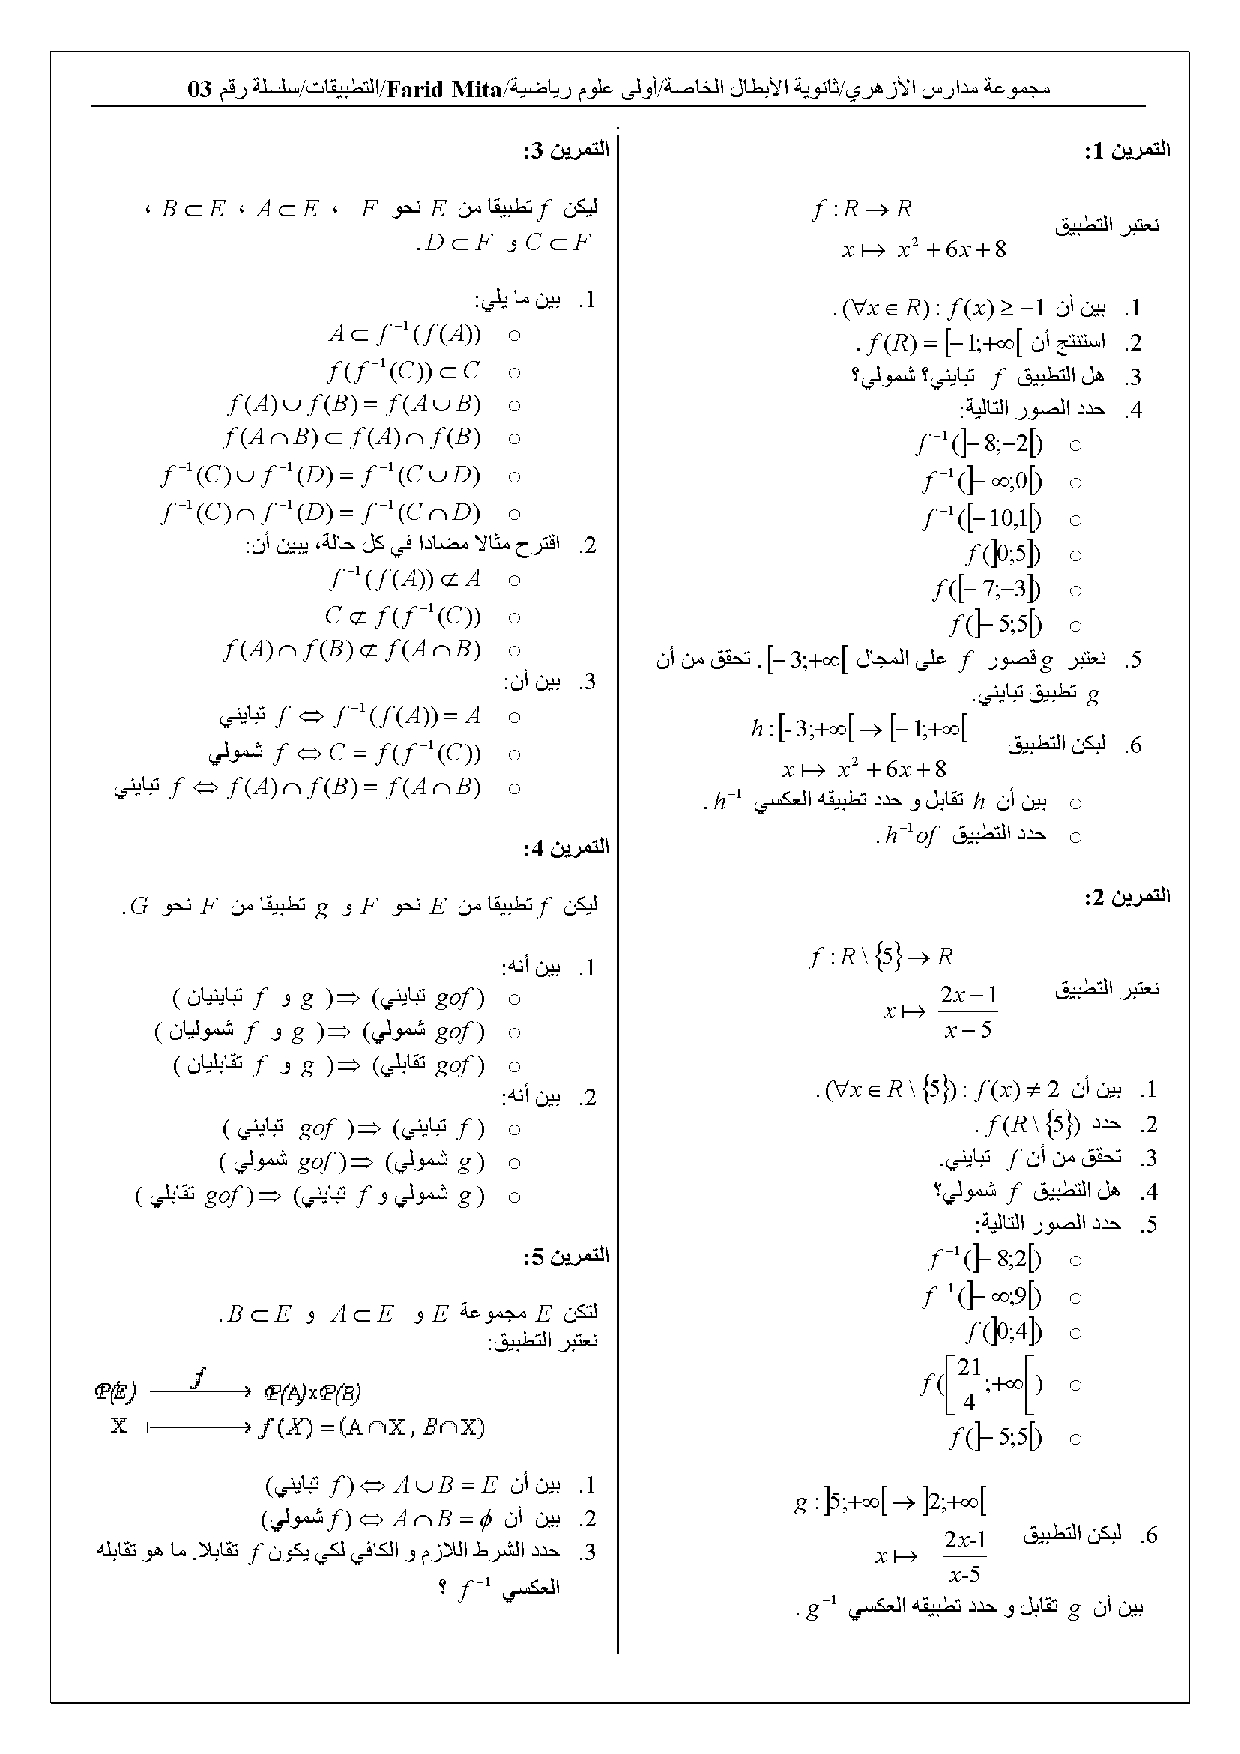 مجموعة مدارس الأزهري/ثانوية الأبطال الخاصة/أولى علوم رياضية/Farid Mita/التطبيقات/سلسلة رقم 03
التمرين 1:
نعتبر التطبيق
f : R → R
x ↦ x² + 6x + 8
1. بين أن (∀x ∈ R) : f(x) ≥ −1.
2. استنتج أن f(R) = [−1;+∞[ .
3. هل التطبيق f تبايني؟ شمولي؟
4. حدد الصور التالية:
○ f⁻¹(]−8;−2[)
○ f⁻¹(]−∞;0[)
○ f⁻¹([−10,1[)
○ f(]0;5])
○ f([−7;−3])
○ f(]−5;5[)
5. نعتبر g قصور f على المجال [−3;+∞[ . تحقق من أن
g تطبيق تبايني.
6. ليكن التطبيق
h : [-3;+∞[ → [−1;+∞[
x ↦ x² + 6x + 8
○ بين أن h تقابل و حدد تطبيقه العكسي h⁻¹ .
○ حدد التطبيق h⁻¹of .
التمرين 2:
نعتبر التطبيق
f : R \ {5} → R
x ↦ (2x − 1)/(x − 5)
1. بين أن (∀x ∈ R \ {5}) : f(x) ≠ 2.
2. حدد f(R \ {5}) .
3. تحقق من أن f تبايني.
4. هل التطبيق f شمولي؟
5. حدد الصور التالية:
○ f⁻¹(]−8;2[)
○ f⁻¹(]−∞;9[)
○ f(]0;4])
○ f([21/4;+∞[)
○ f(]−5;5[)
6. ليكن التطبيق
g : ]5;+∞[ → ]2;+∞[
x ↦ (2x-1)/(x-5)
بين أن g تقابل و حدد تطبيقه العكسي g⁻¹ .
التمرين 3:
ليكن f تطبيقا من E نحو F ، A ⊂ E ، B ⊂ E ،
C ⊂ F و D ⊂ F.
1. بين ما يلي:
○ A ⊂ f⁻¹(f(A))
○ f(f⁻¹(C)) ⊂ C
○ f(A) ∪ f(B) = f(A ∪ B)
○ f(A ∩ B) ⊂ f(A) ∩ f(B)
○ f⁻¹(C) ∪ f⁻¹(D) = f⁻¹(C ∪ D)
○ f⁻¹(C) ∩ f⁻¹(D) = f⁻¹(C ∩ D)
2. اقترح مثالا مضادا في كل حالة، يبين أن:
○ f⁻¹(f(A)) ⊄ A
○ C ⊄ f(f⁻¹(C))
○ f(A) ∩ f(B) ⊄ f(A ∩ B)
3. بين أن:
○ f⁻¹(f(A)) = A ⇔ f تبايني
○ C = f(f⁻¹(C)) ⇔ f شمولي
○ f(A) ∩ f(B) = f(A ∩ B) ⇔ f تبايني
التمرين 4:
ليكن f تطبيقا من E نحو F و g تطبيقا من F نحو G.
1. بين أنه:
○ (gof تبايني) ⇒ (g و f تباينيان)
○ (gof شمولي) ⇒ (g و f شموليان)
○ (gof تقابلي) ⇒ (g و f تقابليان)
2. بين أنه:
○ (f تبايني) ⇒ (gof تبايني)
○ (g شمولي) ⇒ (gof شمولي)
○ (g شمولي و f تبايني) ⇒ (gof تقابلي)
التمرين 5:
لتكن E مجموعة E و A ⊂ E و B ⊂ E.
نعتبر التطبيق:
P(E) —f→ P(A)xP(B)
X ⟼ f(X) = (A ∩ X , B ∩ X)
1. بين أن A ∪ B = E ⇔ (f تبايني)
2. بين أن A ∩ B = ϕ ⇔ (f شمولي)
3. حدد الشرط اللازم و الكافي لكي يكون f تقابلا. ما هو تقابله
العكسي f⁻¹ ؟